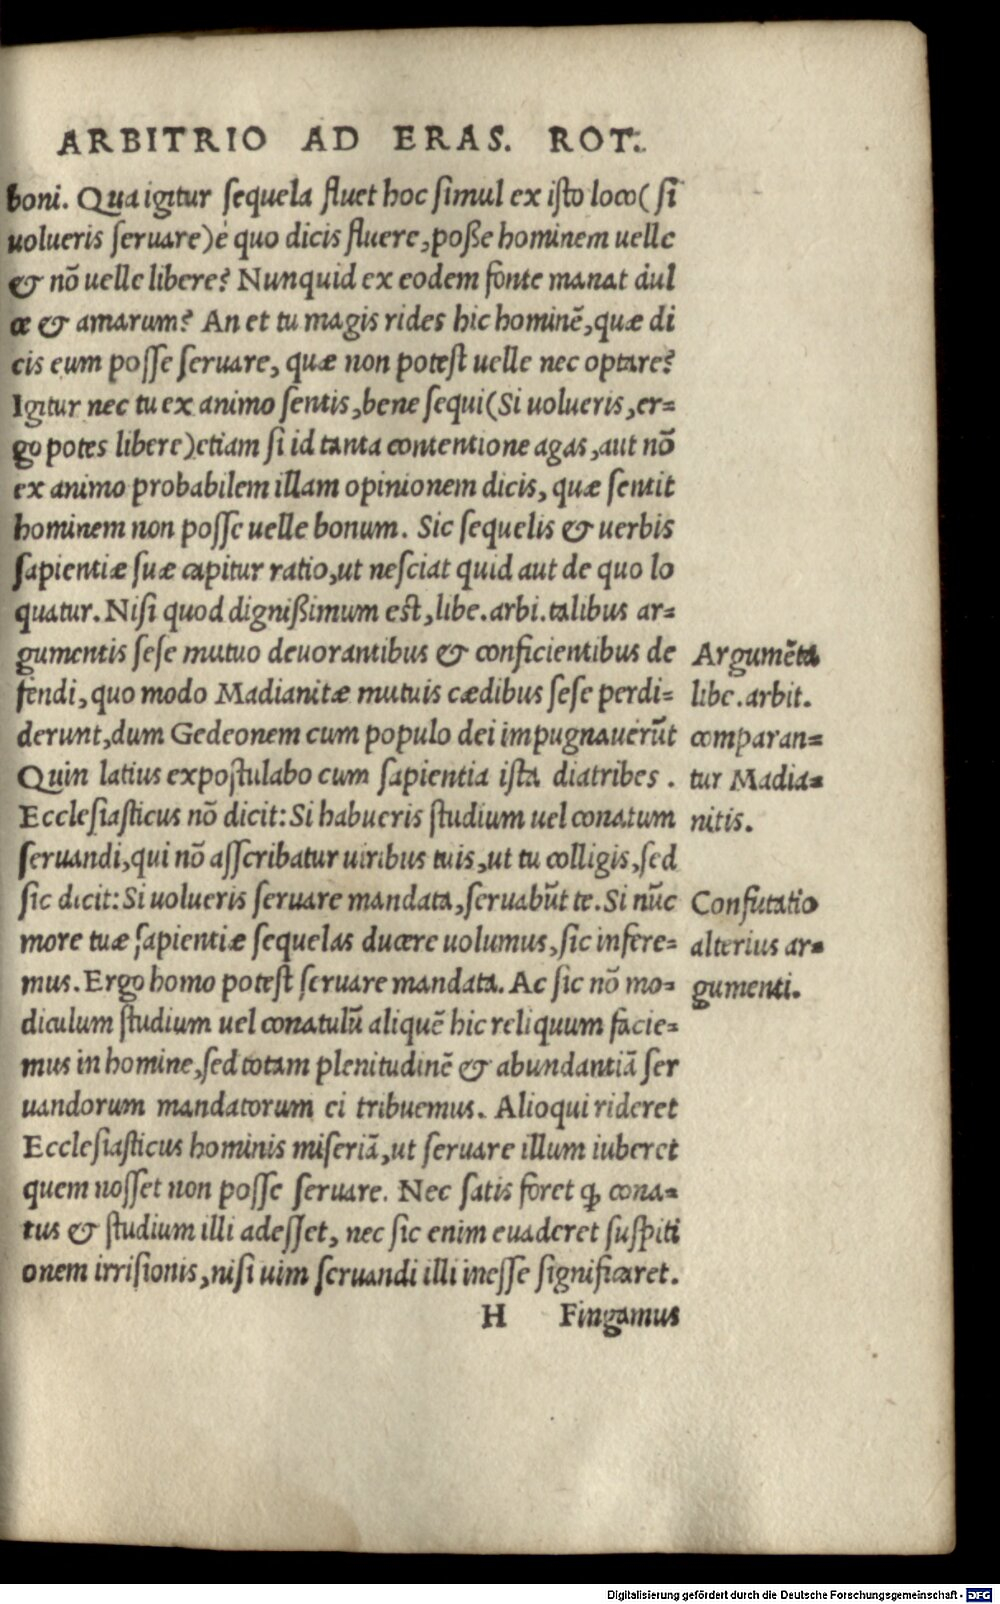 ARBITRIO AD ERAS. ROT.
boni. Qua igitur sequela fluet hoc simul ex isto loco (si
uolueris seruare) è quo dicis fluere, posse hominem uelle
& nō uelle libere? Nunquid ex eodem fonte manat dul
ce & amarum? An et tu magis rides hic hominē, quæ di
cis eum posse seruare, quæ non potest uelle nec optare?
Igitur nec tu ex animo sentis, bene sequi (Si uolueris, er=
go potes libere) etiam si id tanta contentione agas, aut nō
ex animo probabilem illam opinionem dicis, quæ sentit
hominem non posse uelle bonum. Sic sequelis & uerbis
sapientiæ suæ capitur ratio, ut nesciat quid aut de quo lo
quatur. Nisi quod dignissimum est, libe. arbi. talibus ar=
gumentis sese mutuo deuorantibus & conficientibus de
fendi, quo modo Madianitæ mutuis cædibus sese perdi=
derunt, dum Gedeonem cum populo dei impugnauerūt
Quin latius expostulabo cum sapientia ista diatribes.
Ecclesiasticus nō dicit: Si habueris studium uel conatum
seruandi, qui nō asscribatur uiribus tuis, ut tu colligis, sed
sic dicit: Si uolueris seruare mandata, seruabūt te. Si nūc
more tuæ sapientiæ sequelas ducere uolumus, sic infere=
mus. Ergo homo potest seruare mandata. Ac sic nō mo=
diculum studium uel conatulū aliquē hic reliquum facie=
mus in homine, sed totam plenitudinē & abundantiā ser
uandorum mandatorum ei tribuemus. Alioqui rideret
Ecclesiasticus hominis miseriā, ut seruare illum iuberet
quem nosset non posse seruare. Nec satis foret ꝙ cona=
tus & studium illi adesset, nec sic enim euaderet suspiti
onem irrisionis, nisi uim seruandi illi inesse significaret.
H Fingamus
Argumēta
libe. arbit.
comparan=
tur Madia=
nitis.
Confutatio
alterius ar=
gumenti.
Digitalisierung gefördert durch die Deutsche Forschungsgemeinschaft - DFG